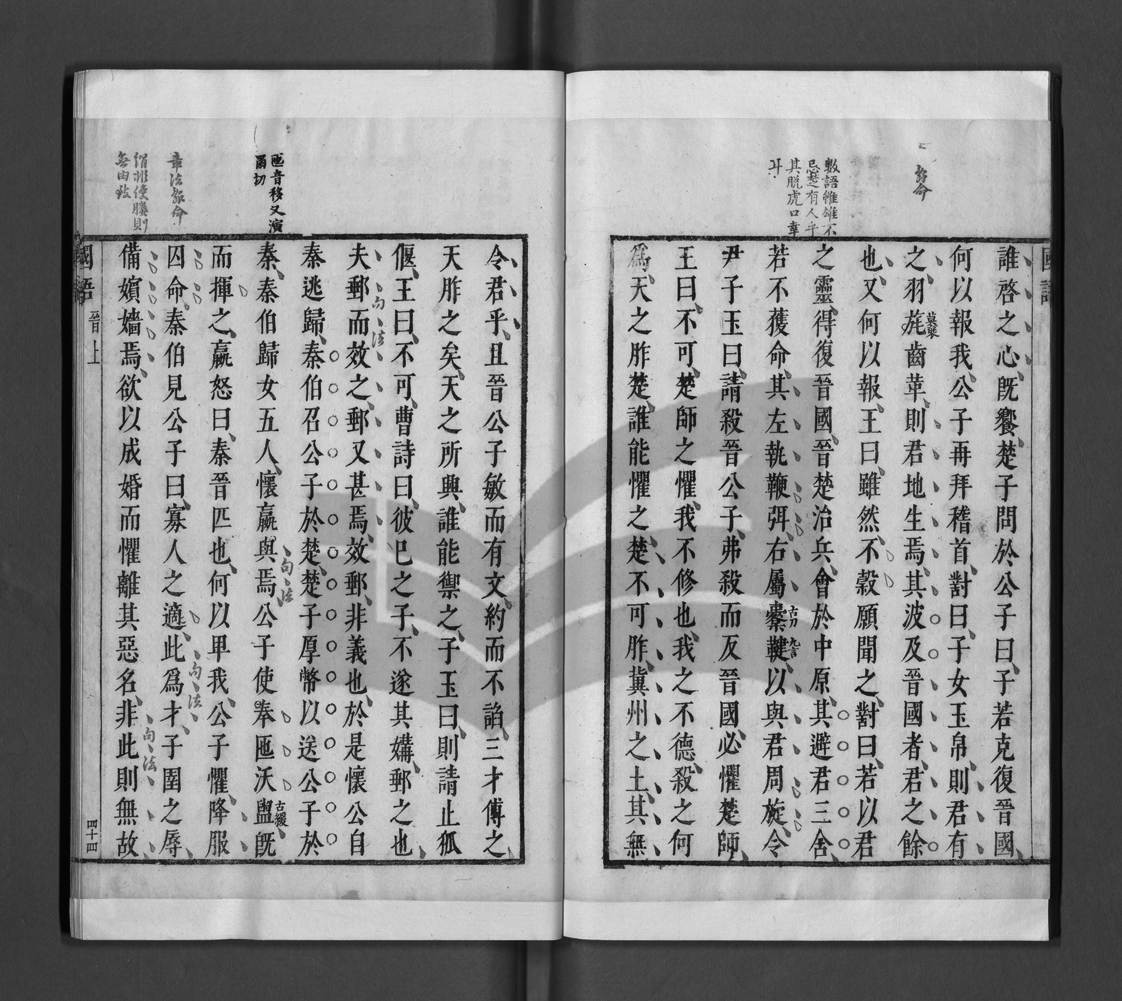 辭命
數語惟雄不
忌楚有人乎
其脫虎口幸
國語
誰啓之心旣饗楚子問於公子曰子若克復晉國
何以報我公子再拜稽首對曰子女玉帛則君有
之羽旄齒革則君地生焉其波及晉國者君之餘
也又何以報王曰雖然不穀願聞之對曰若以君
之靈得復晉國晉楚治兵會於中原其避君三舍
若不獲命其左執鞭弭右屬櫜鞬以與君周旋令
尹子玉曰請殺晉公子弗殺而反晉國必懼楚師
王曰不可楚師之懼我不修也我之不德殺之何
爲天之胙楚誰能懼之楚不可胙冀州之土其無
令君乎且晉公子敏而有文約而不諂三才傅之
天胙之矣天之所興誰能禦之子玉曰則請止狐
偃王曰不可曹詩曰彼己之子不遂其媾郵之也
夫郵而效之郵又甚焉效郵非義也於是懷公自
秦逃歸秦伯召公子於楚楚子厚幣以送公子於
秦秦伯歸女五人懷嬴與焉公子使奉匜沃盥旣
而揮之嬴怒曰秦晉匹也何以卑我公子懼降服
囚命秦伯見公子曰寡人之適此爲才子圉之辱
備嬪嬙焉欲以成婚而懼離其惡名非此則無故
國語
晉上
四十四
匜音移又演
爾切
章法辭命
句法
句法
句法
句法